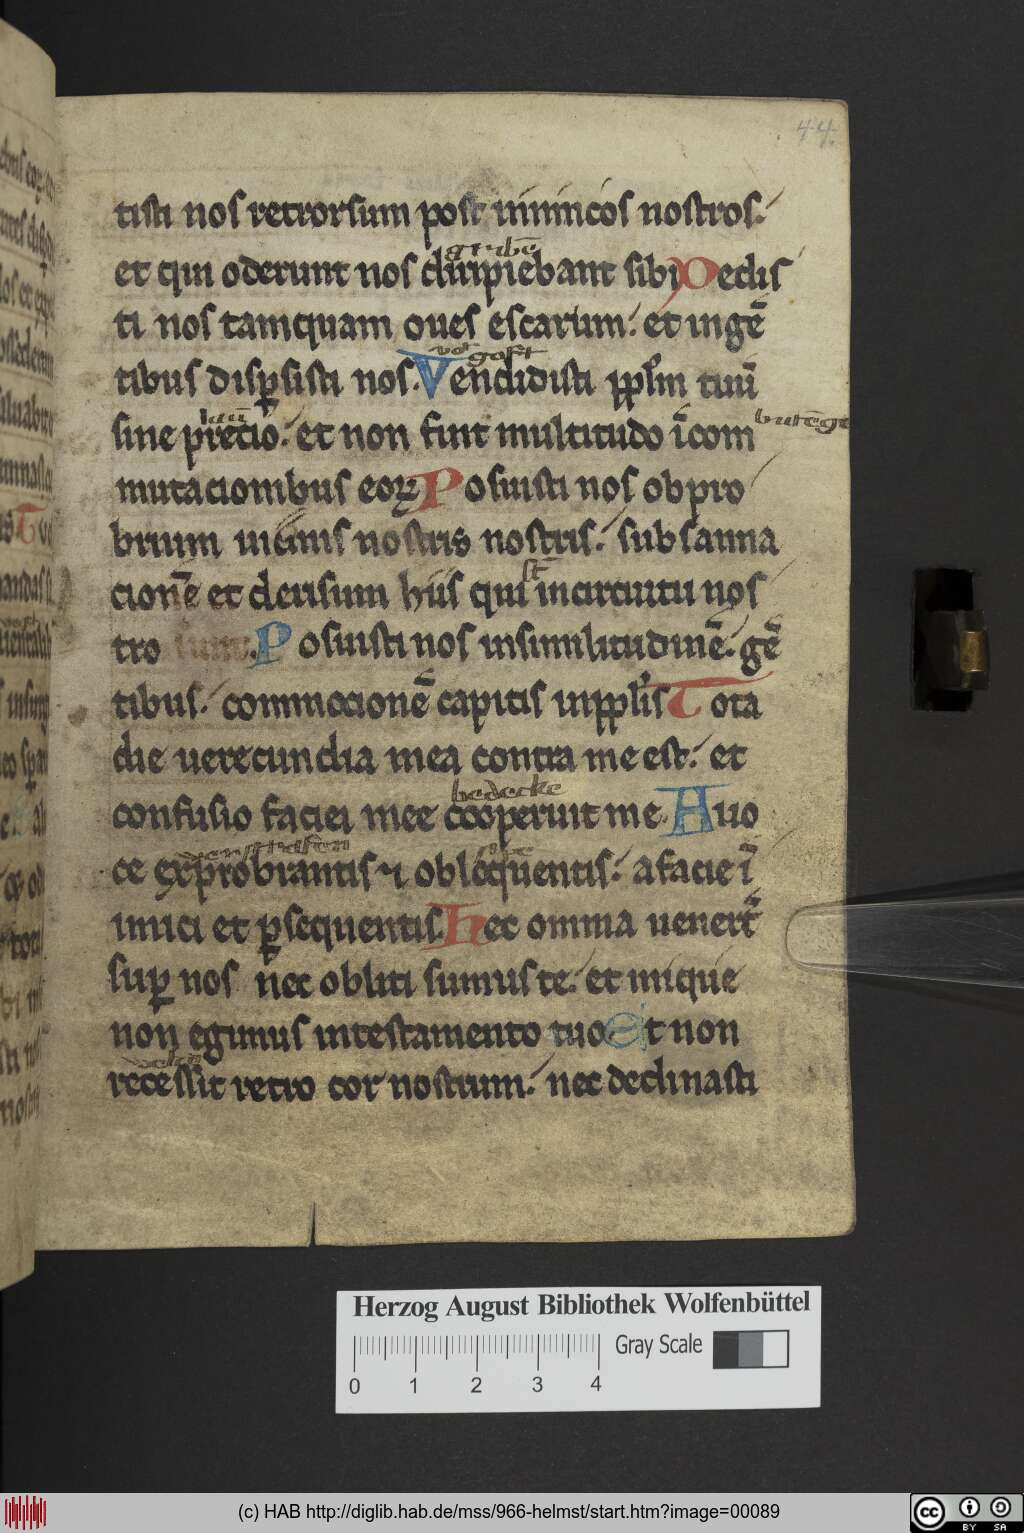 44.
tisti nos retrorsum post inimicos nostros.
et qui oderunt nos diripiebant sibi Dedis
ti nos tamquam oues escarum. et in gē
tibus disꝑsisti nos. Vendidisti pplm tuū
sine precio. et non fuit multitudo ī com
mutacionibus eoꝝ Posuisti nos obpro
brium uicinis nostris nostris. subsanna
cionē et derisum hiis qui in circuitu nos
tro sunt. Posuisti nos in similitudinē. gē
tibus. commocionē capitis in pplis Tota
die uerecundia mea contra me est. et
bedecke
confusio faciei mee cooperuit me. A uo
ce exprobrantis ⁊ obloquentis. a facie ī
imici et ꝑsequentis. Hec omnia uenert̄
suꝑ nos nec obliti sumus te. et inique
non egimus in testamento tuo Et non
recessit retro cor nostrum. nec declinasti
Herzog August Bibliothek Wolfenbüttel
Gray Scale
0 1 2 3 4
(c) HAB http://diglib.hab.de/mss/966-helmst/start.htm?image=00089
cc BY SA